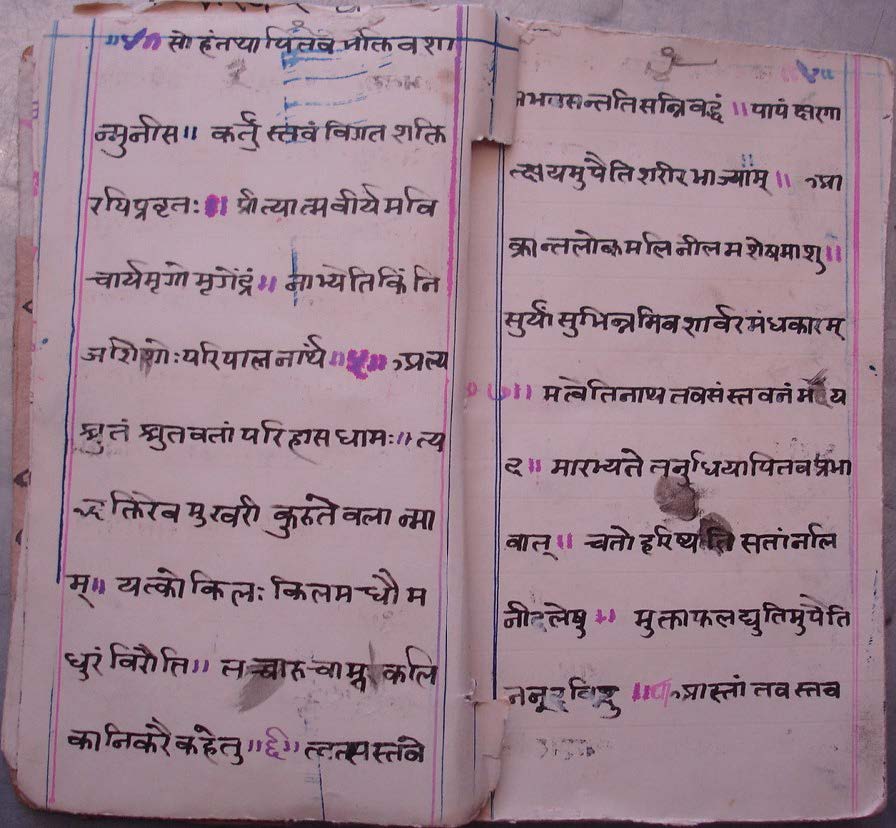 ॥४॥ सोहंतथापितवभक्तिवशा
न्मुनीस॥ कर्तुंस्तवंविगतशक्ति
रपिप्रवृतः॥ प्रीत्यात्मवीर्यमवि
चार्यमृगोमृगेंद्रं॥ नाभ्येतिकिंनि
जशिशोःपरिपालनार्थं॥५॥ अल्प
श्रुतंश्रुतवतांपरिहासधामः॥ त्व
द्भक्तिरेवमुखरीकुरुतेवलान्मा
म्॥ यत्कोकिलःकिलमधौम
धुरंविरौति॥ तच्चारुचाम्रकलि
कानिकरैकहेतु॥६॥ त्वत्सस्तवे
नभवसन्ततिसन्निवद्धं॥ पापंक्षणा
त्क्षयमुपैतिशरीरभाज्याम्॥ आ
क्रान्तलोकमलिनीलमशेषमाशु॥
सुर्यांसुभिन्नमिवशार्वरमंधकारम्
॥७॥ मत्वेतिनाथतवसंस्तवनंमय
द॥ मारभ्यतेतनुधियापितवप्रभा
वात्॥ चेतोहरिष्यतिसतांनलि
नीदलेषु॥ मुक्ताफलद्युतिमुपैति
ननूदविंदु॥८॥ आस्तांतवस्तव